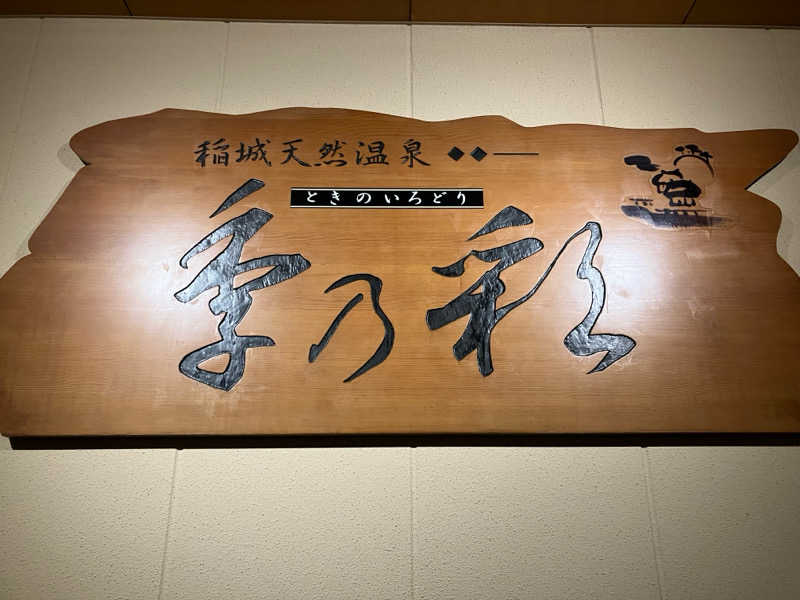 稲城天然温泉 ◆◆―
ときのいろどり
季乃彩